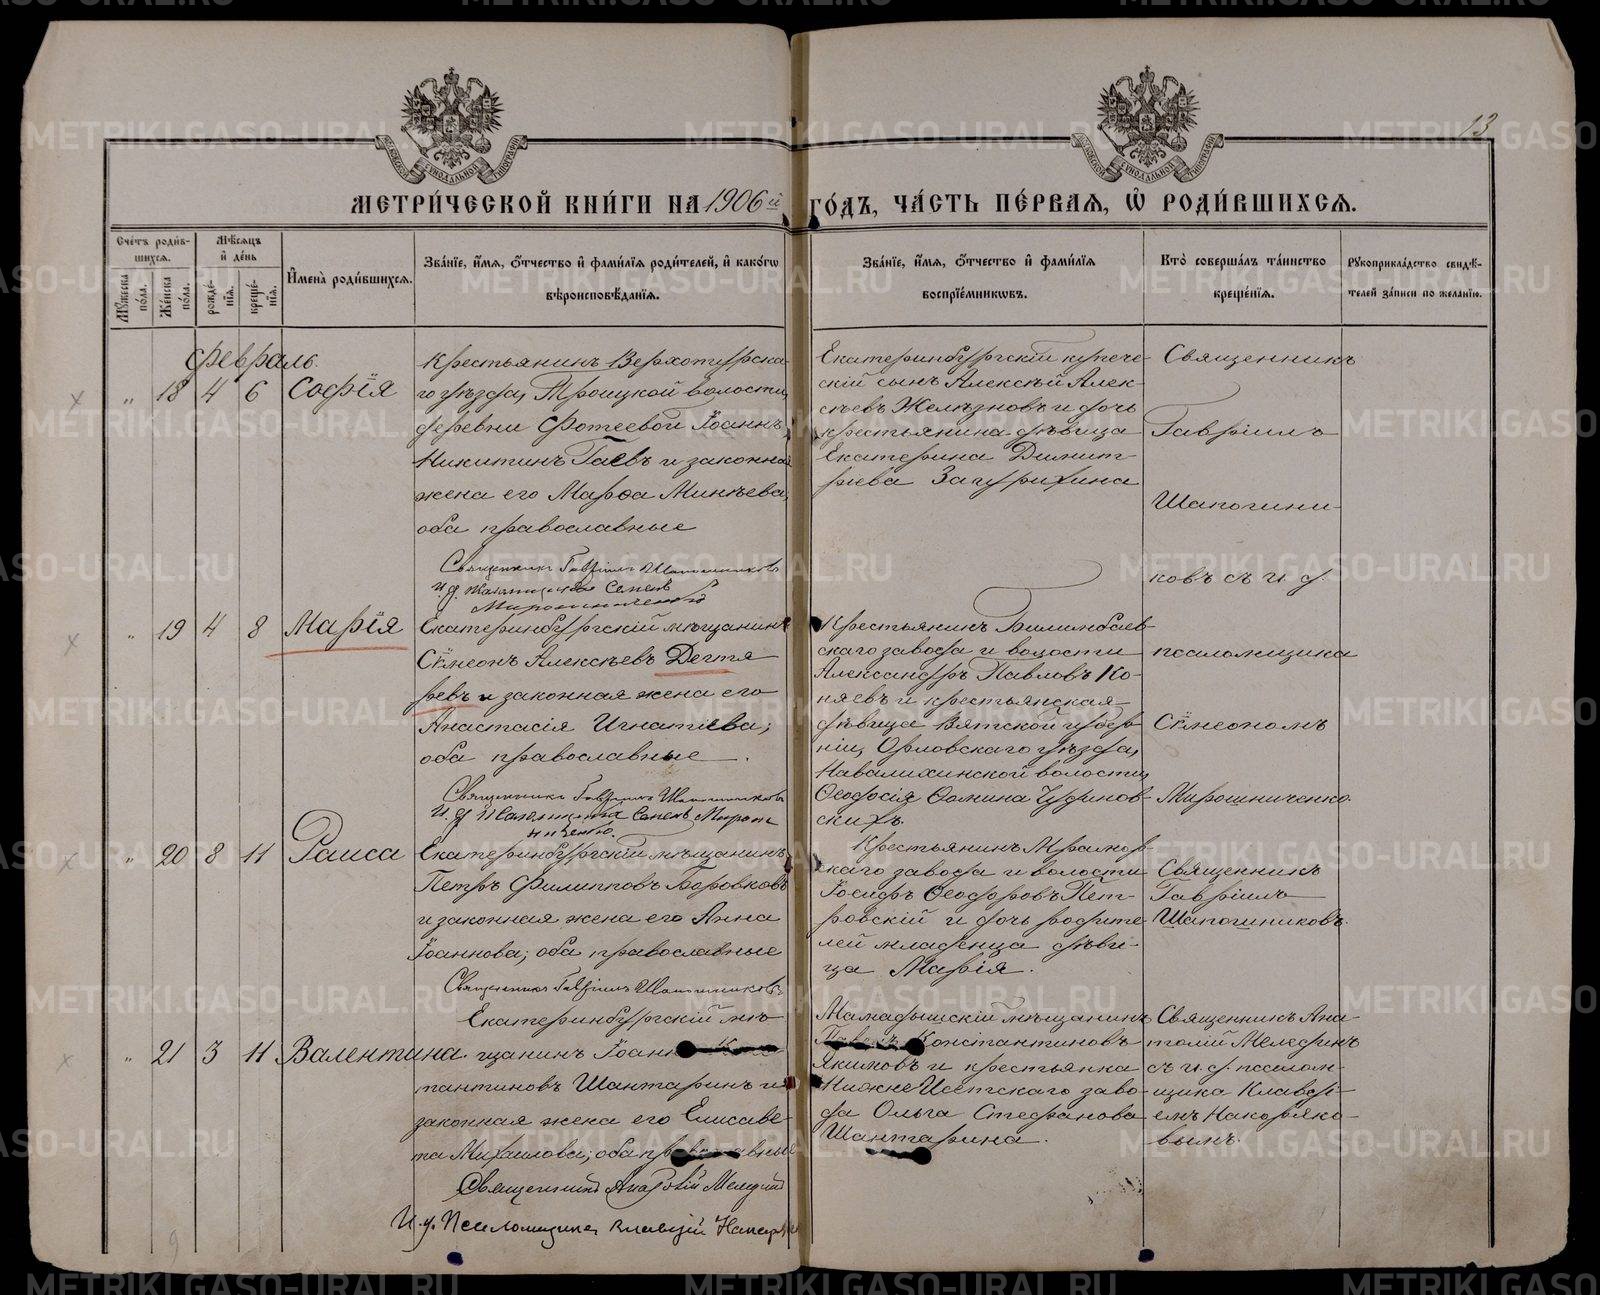 13
МЕТРИЧЕСКОЙ КНИГИ НА 1906й ГОДЪ, ЧАСТЬ ПЕРВАЯ, Ѡ РОДИВШИХСЯ.
Счетъ родив-
шихся.
Мужеска пола.
Женска пола.
Мѣсяцъ и день
рожде-
нія.
креще-
нія.
Имена родившихся.
Званіе, имя, отчество и фамилія родителей, и какогѡ
вѣроисповѣданія.
Званіе, имя, отчество и фамилія
воспріемниковъ.
Кто совершалъ таинство
крещенія.
Рукоприкладство свидѣ-
телей записи по желанію.
Февраль.
„ 18 4 6 Софія
Крестьянинъ Верхотурска-
го уѣзда, Троицкой волости,
деревни Фотеевой Іоаннъ
Никитинъ Гаевъ и законная
жена его Марѳа Минѣева,
оба православные
Священникъ Гавріилъ Шапошниковъ
И. д. псаломщика Семенъ
Мирошниченко
Екатеринбургскій купече-
скій сынъ Алексѣй Алек-
сѣевъ Желѣзновъ и дочь
крестьянина дѣвица
Екатерина Димит-
ріева Загурихина
Священникъ
Гавріилъ
Шапошни-
ковъ съ и. д.
„ 19 4 8 Марія
Екатеринбургскій мѣщанинъ
Сѷмеонъ Алексѣевъ Дегтя
ревъ и законная жена его
Анастасія Игнатіева;
оба православные.
Священникъ Гавріилъ Шапошниковъ
И. д. псаломщика Семенъ Мирош
ниченко.
Крестьянинъ Билимбаев-
скаго завода и волости
Александръ Павловъ Ко-
няевъ и крестьянская
дѣвица Вятской губер-
ніи, Орловскаго уѣзда,
Навалихинской волости,
Ѳеодосія Ѳомина Чудинов-
скихъ.
псаломщика
Сѷмеономъ
Мирошниченко.
„ 20 8 11 Раиса
Екатеринбургскій мѣщанинъ
Петръ Филипповъ Боровковъ
и законная жена его Анна
Іоаннова; оба православные
Священникъ Гавріилъ Шапошниковъ
Крестьянинъ Мрамор-
скаго завода и волости
Іосифъ Ѳеодоровъ Пет-
ровскій и дочь родите-
лей младенца дѣви-
ца Марія.
Священникъ
Гавріилъ
Шапошниковъ.
„ 21 3 11 Валентина.
Екатеринбургскій мѣ-
щанинъ Іоаннъ Конс-
тантиновъ Шантаринъ и
законная жена его Елисаве-
та Михаилова; оба православные
Священникъ Анатолій Мелединъ
И. д. Псаломщика Клавдій Накоряковъ
Мамадышскій мѣщанинъ
Константиновъ
Якимовъ и крестьянка
Нижне Исетскаго заво-
да Ольга Стефанова
Шантарина.
Священникъ Ана-
толій Мелединъ
съ и. д. псалом-
щика Клавді-
емъ Накоряко-
вымъ.
METRIKI.GASO-URAL.RU